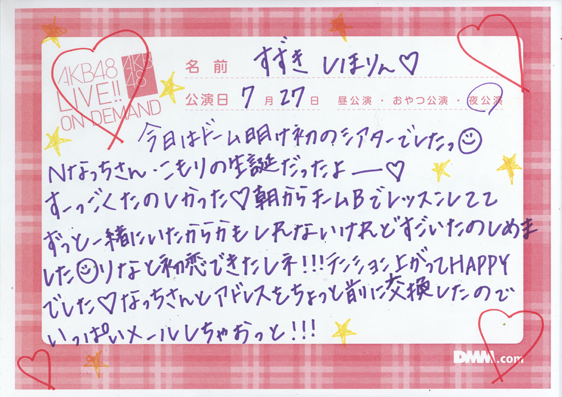 AKB48
LIVE!!
ON DEMAND
AKB
48
名前 すずき しほりん♡
公演日 7月27日 昼公演・おやつ公演・夜公演
今日はドーム明け初のシアターでしたっ
Nなっちさん・こもりの生誕だったよー♡
すーっごくたのしかった♡朝からチームBでレッスンしてて
ずっと一緒にいたからかもしれないけれどすごいたのしめま
した りなと初恋できたしネ!!!テンション上がってHAPPY
でした♡なっちさんとアドレスをちょっと前に交換したので
いっぱいメールしちゃおっと!!!
DMM.com